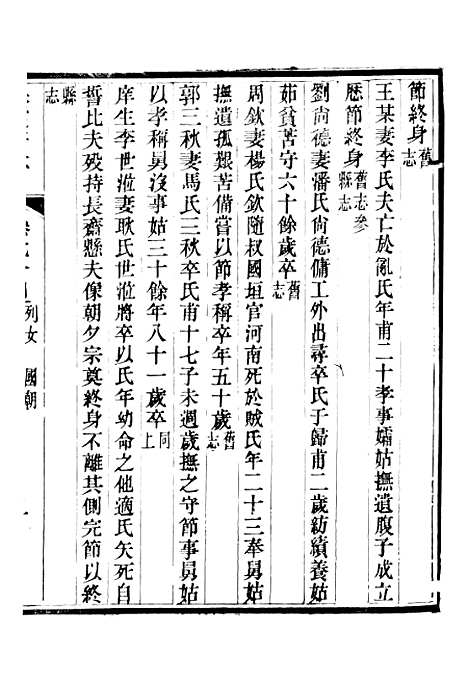 節終身舊志
王某妻李氏夫亡於亂氏年甫二十孝事孀姑撫遺腹子成立
歷節終身舊志參縣志
劉尙德妻潘氏尙德傭工外出尋卒氏于歸甫二歲紡績養姑
茹貧苦守六十餘歲卒舊志
周欽妻楊氏欽隨叔國垣官河南死於賊氏年二十三奉舅姑
撫遺孤艱苦備嘗以節孝稱卒年五十歲舊志
郭三秋妻馬氏三秋卒氏甫十七子未週歲撫之守節事舅姑
以孝稱舅沒事姑三十餘年八十一歲卒同上
庠生李世涖妻耿氏世涖將卒以氏年幼命之他適氏矢死自
誓比夫歿持長齋懸夫像朝夕宗奠終身不離其側完節以終
縣志
列女 國朝